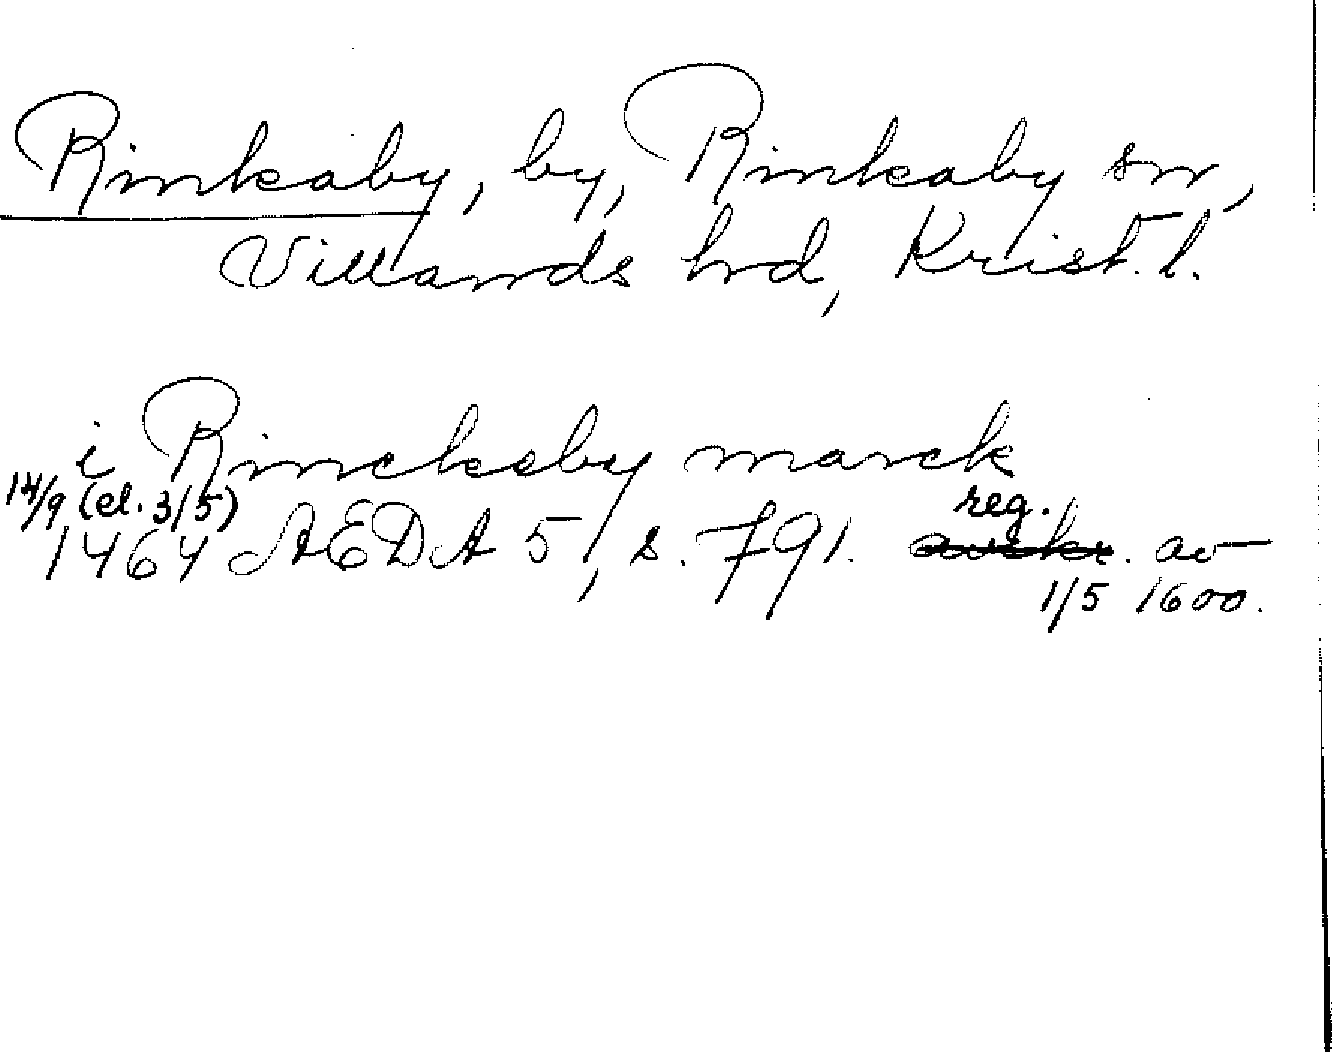 Rinkaby, by, Rinkaby sn,
Villands hrd, Krist. l.
i Rinckeby marck
14/9 (el. 3/5) reg.
1464 AEDA 5, s. 791. avskr. av
1/5 1600.